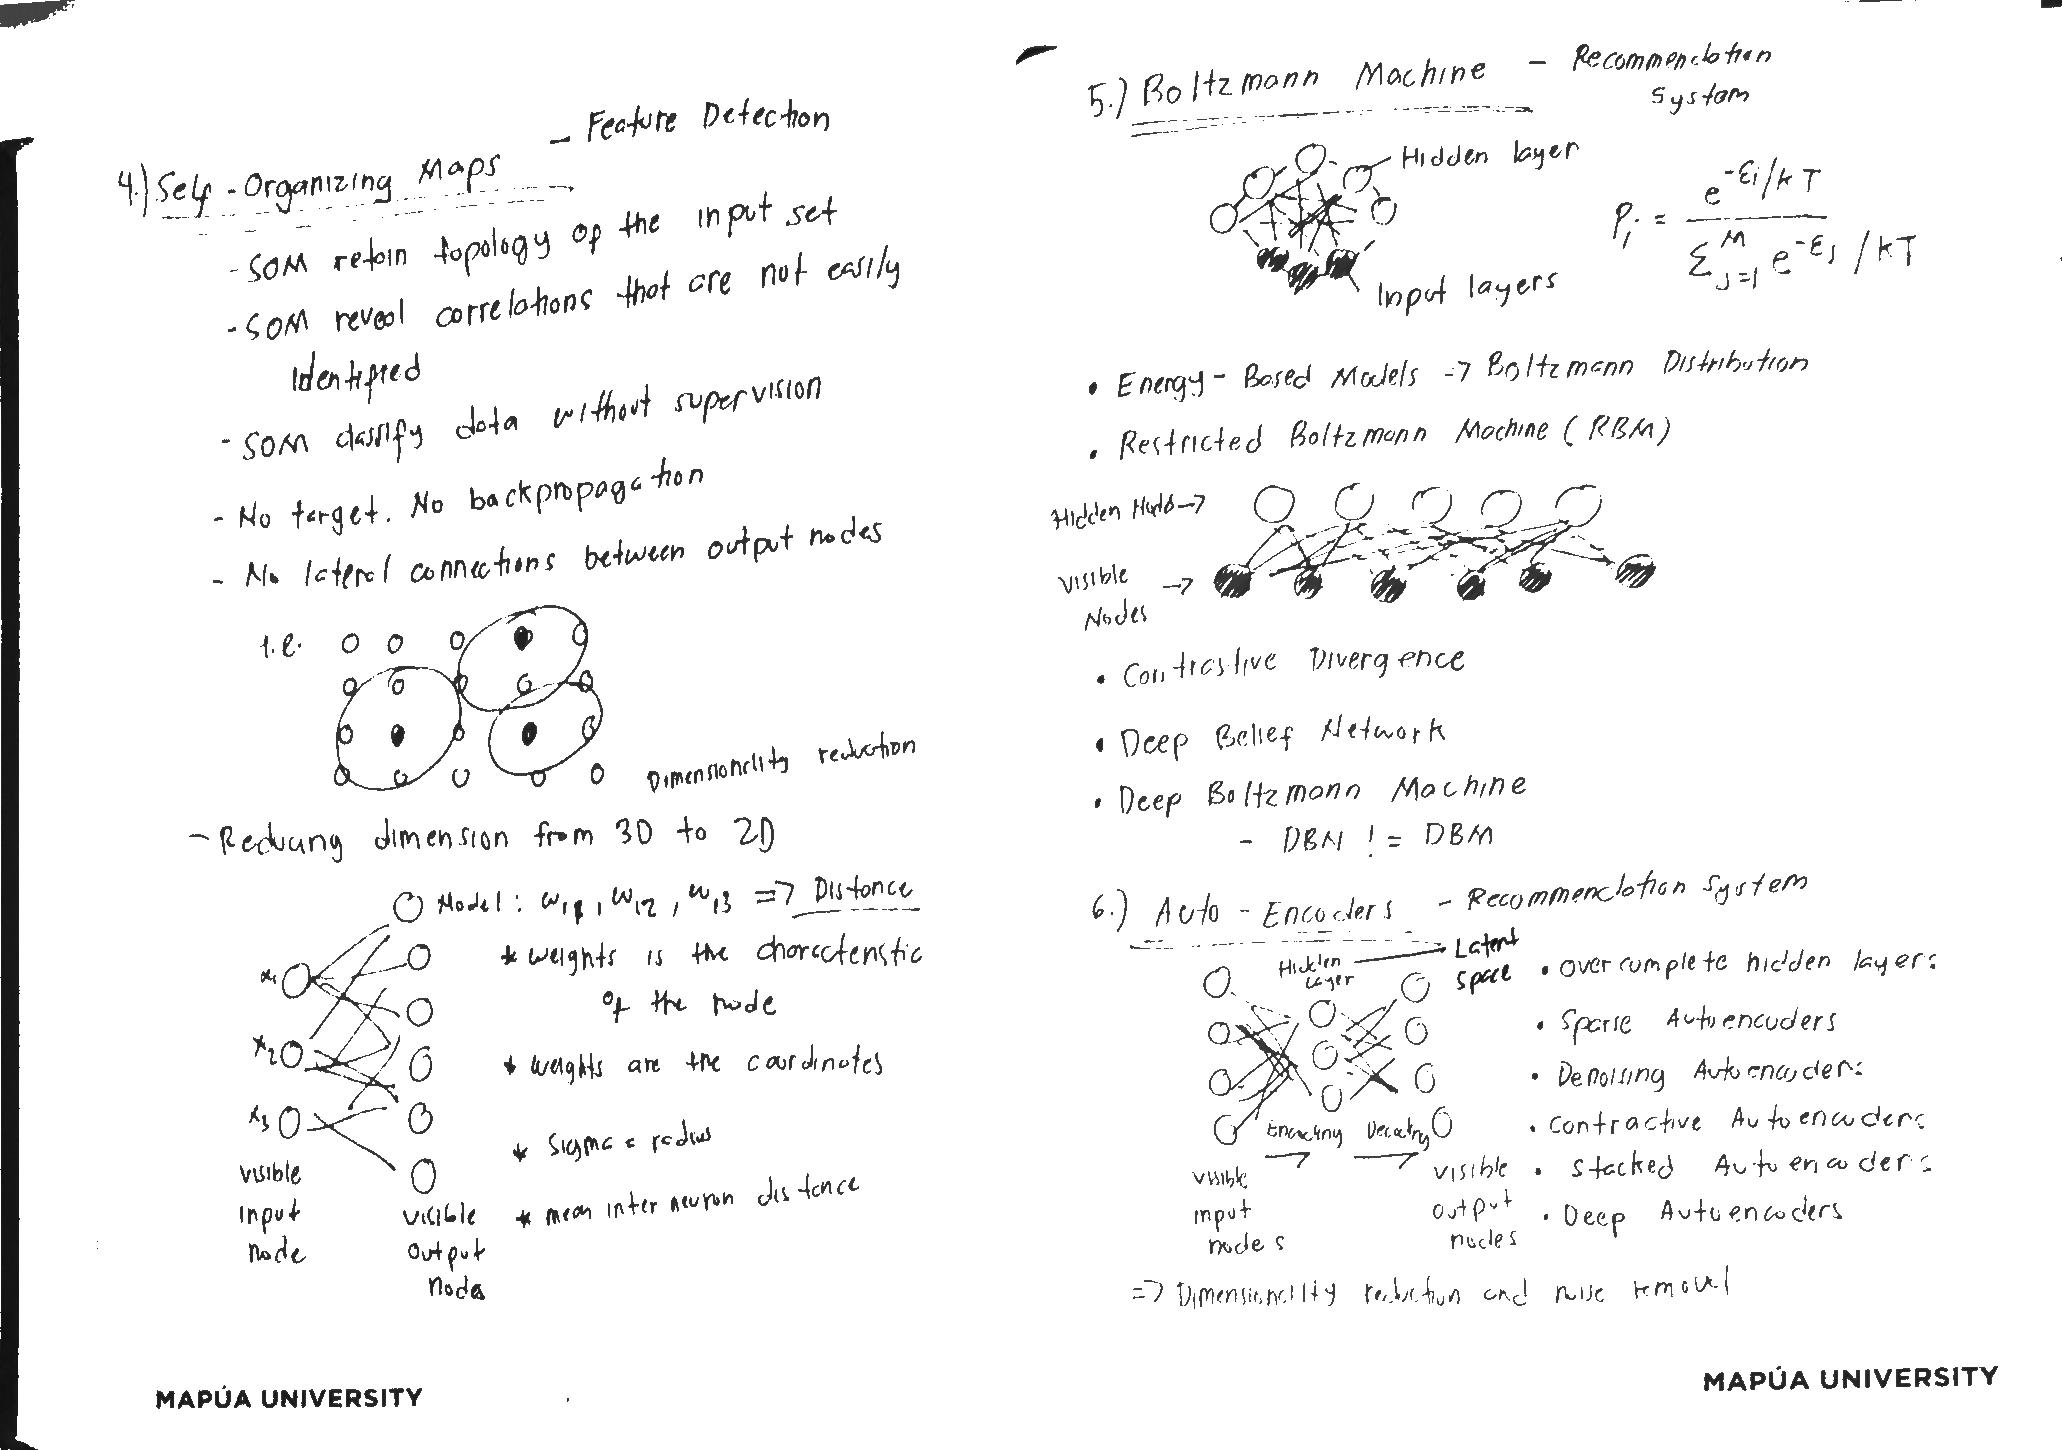 - Feature Detection
4.) Self-Organizing Maps
- SOM retain topology of the input set
- SOM reveal correlations that are not easily
Identified
- SOM classify data without supervision
- No target. No backpropagation
- No lateral connections between output nodes
i.e.
Dimensionality reduction
- Reducing dimension from 3D to 2D
Model: w11, w12, w13 => Distance
* weights is the characteristic
of the node
* weights are the coordinates
* Sigma = radius
* mean inter neuron distance
x1
x2
x3
visible
Input
node
visible
output
nodes
MAPÚA UNIVERSITY
5.) Boltzmann Machine - Recommendation
System
Hidden layer
Pi = e^-Ei/kT / Σ^M j=1 e^-Ej/kT
Input layers
• Energy-Based Models => Boltzmann Distribution
• Restricted Boltzmann Machine (RBM)
Hidden Node ->
visible ->
Nodes
• Contrastive Divergence
• Deep Belief Network
• Deep Boltzmann Machine
- DBN != DBM
6.) Auto-Encoders - Recommendation System
Hidden
Layer
Latent
space
Encoding
Decoding
visible
input
nodes
visible
output
nodes
• overcomplete hidden layers
• Sparse Autoencoders
• Denoising Autoencoders
• Contractive Autoencoders
• Stacked Autoencoders
• Deep Autoencoders
=> Dimensionality reduction and noise removal
MAPÚA UNIVERSITY